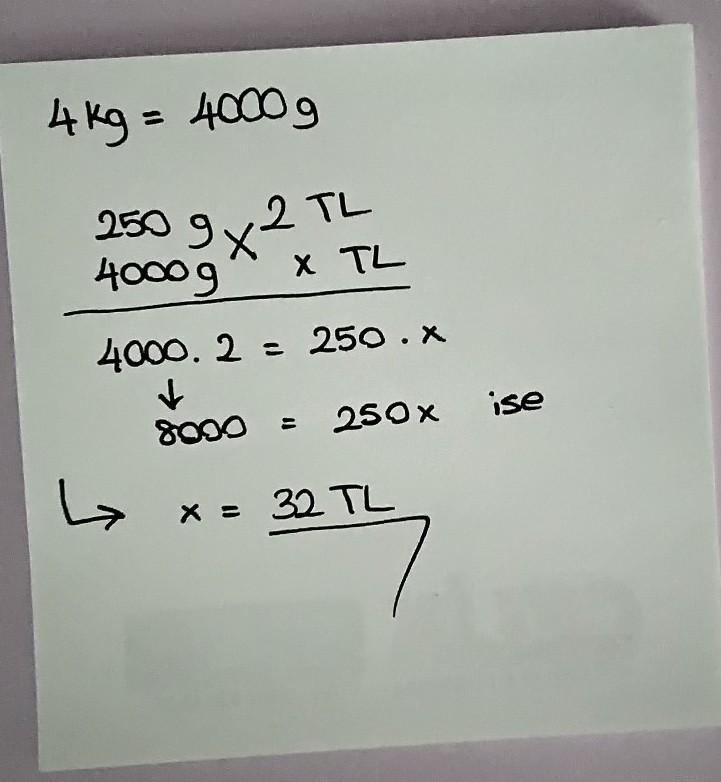 4 kg = 4000 g
250 g x 2 TL
4000 g x TL
4000 . 2 = 250 . x
↓
8000 = 250x ise
↳ x = 32 TL